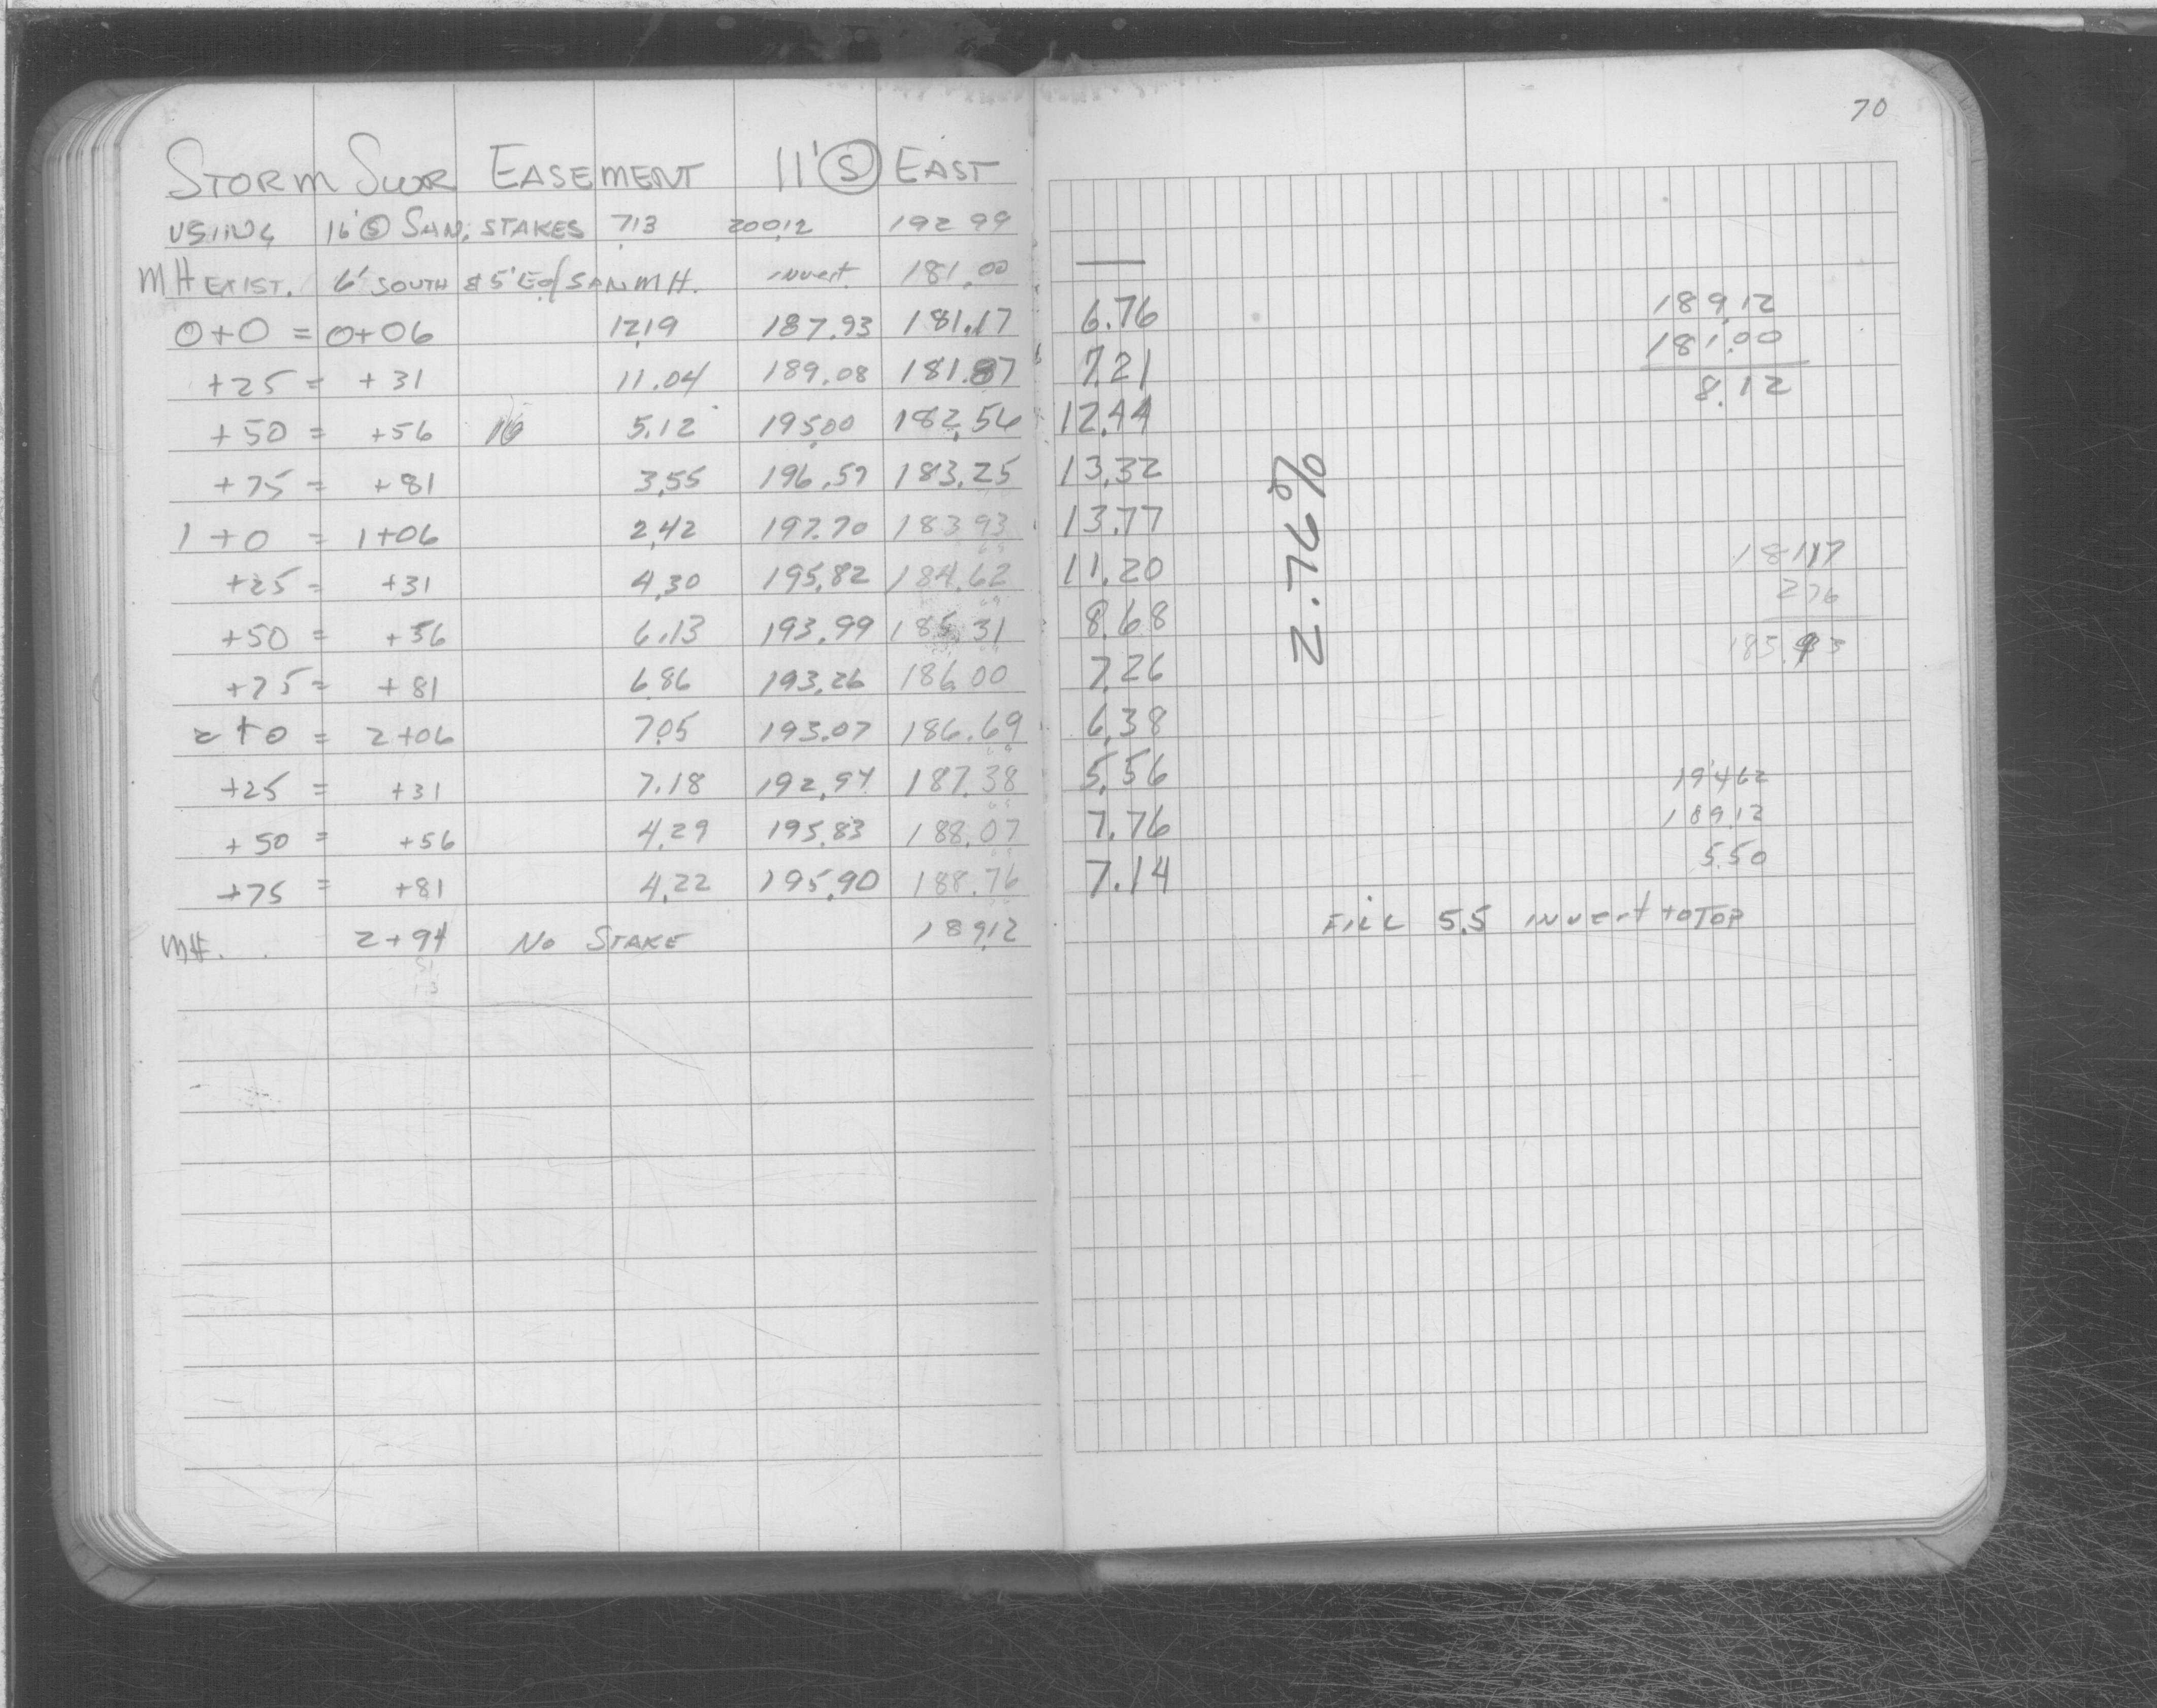 70
STORM SWR EASEMENT 11' S EAST
USING 16' S SAN. STAKES 7.13 200.12 192.99
MH EXIST. 6' SOUTH & 5' E of SAN MH. invert 181.00
0+0 = 0+06 12.19 187.93 181.17 6.76
+25 = +31 11.04 189.08 181.87 7.21
+50 = +56 16 5.12 195.00 182.56 12.44
+75 = +81 3.55 196.57 183.25 13.32
1+0 = 1+06 2.42 197.70 183.93 13.77
+25 = +31 4.30 195.82 184.62 11.20
+50 = +56 6.13 193.99 185.31 8.68
+75 = +81 6.86 193.26 186.00 7.26
2+0 = 2+06 7.05 193.07 186.69 6.38
+25 = +31 7.18 192.94 187.38 5.56
+50 = +56 4.29 195.83 188.07 7.76
+75 = +81 4.22 195.90 188.76 7.14
MH. 2+94 NO STAKE 189.12
2.76%
189.12
181.00
8.12
181.17
2.76
183.93
194.62
189.12
5.50
FILL 5.5 invert to TOP